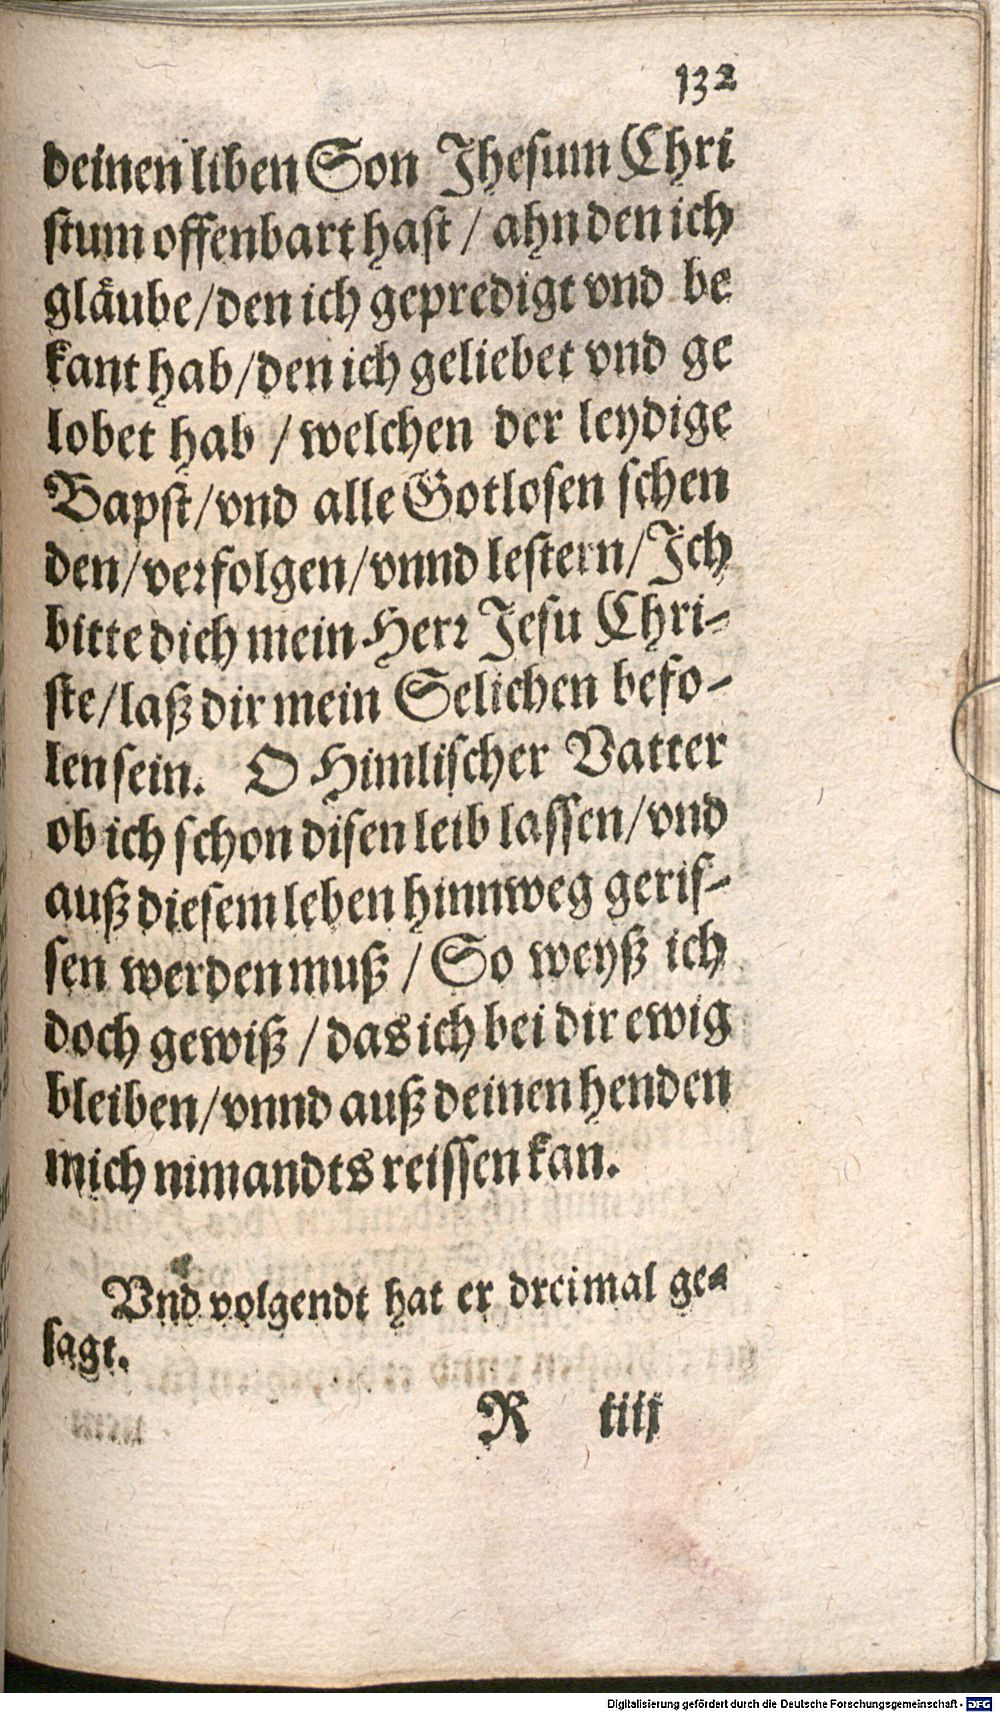 132
deinen liben Son Jhesum Chri
stum offenbart hast / ahn den ich
gläube / den ich gepredigt vnd be
kant hab / den ich geliebet vnd ge
lobet hab / welchen der leydige
Bapst / vnd alle Gotlosen schen
den / verfolgen / vnnd lestern / Ich
bitte dich mein Herr Jesu Chri-
ste / laß dir mein Selichen befo-
len sein. O Himlischer Vatter
ob ich schon disen leib lassen / vnd
auß diesem leben hinnweg geris-
sen werden muß / So weyß ich
doch gewiß / das ich bei dir ewig
bleiben / vnnd auß deinen henden
mich nimandts reissen kan.
Vnd volgendt hat er dreimal ge-
sagt.
R iiij
Digitalisierung gefördert durch die Deutsche Forschungsgemeinschaft - DFG